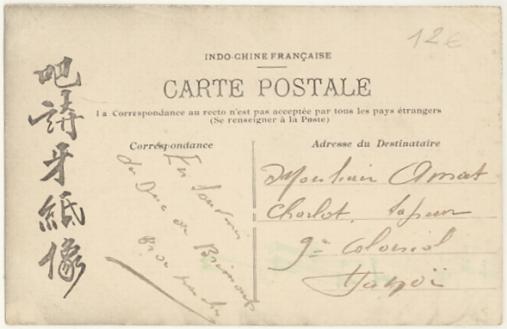 12€
INDO-CHINE FRANÇAISE
CARTE POSTALE
La Correspondance au recto n'est pas acceptée par tous les pays étrangers
(Se renseigner à la Poste)
Correspondance
Adresse du Destinataire
吧詩牙紙像
En Souvenir
du Duc de
Monsieur Amat
Charlot. Sapeur
9e Colonial
Hanoï